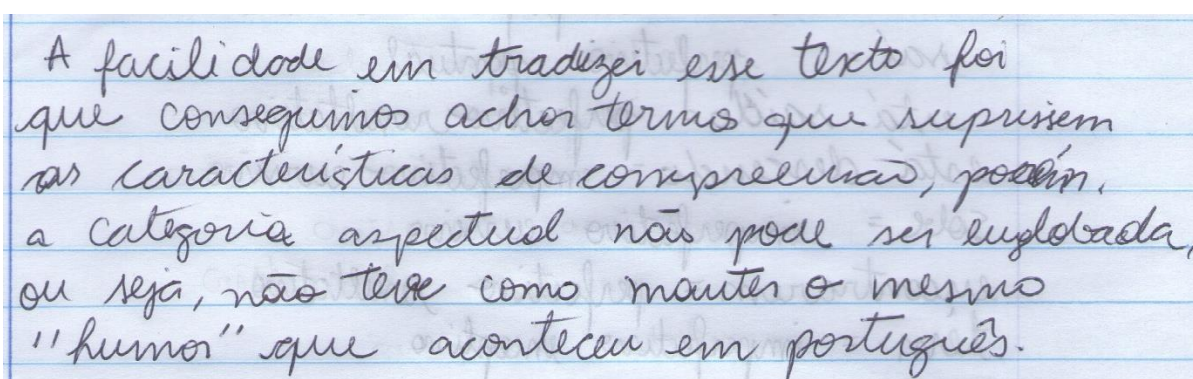 A facilidade em tradizer esse texto foi
que conseguimos achar termos que suprissem
as características de compreensão, porém,
a categoria aspectual não pode ser englobada,
ou seja, não teve como manter o mesmo
"humor" que aconteceu em português.